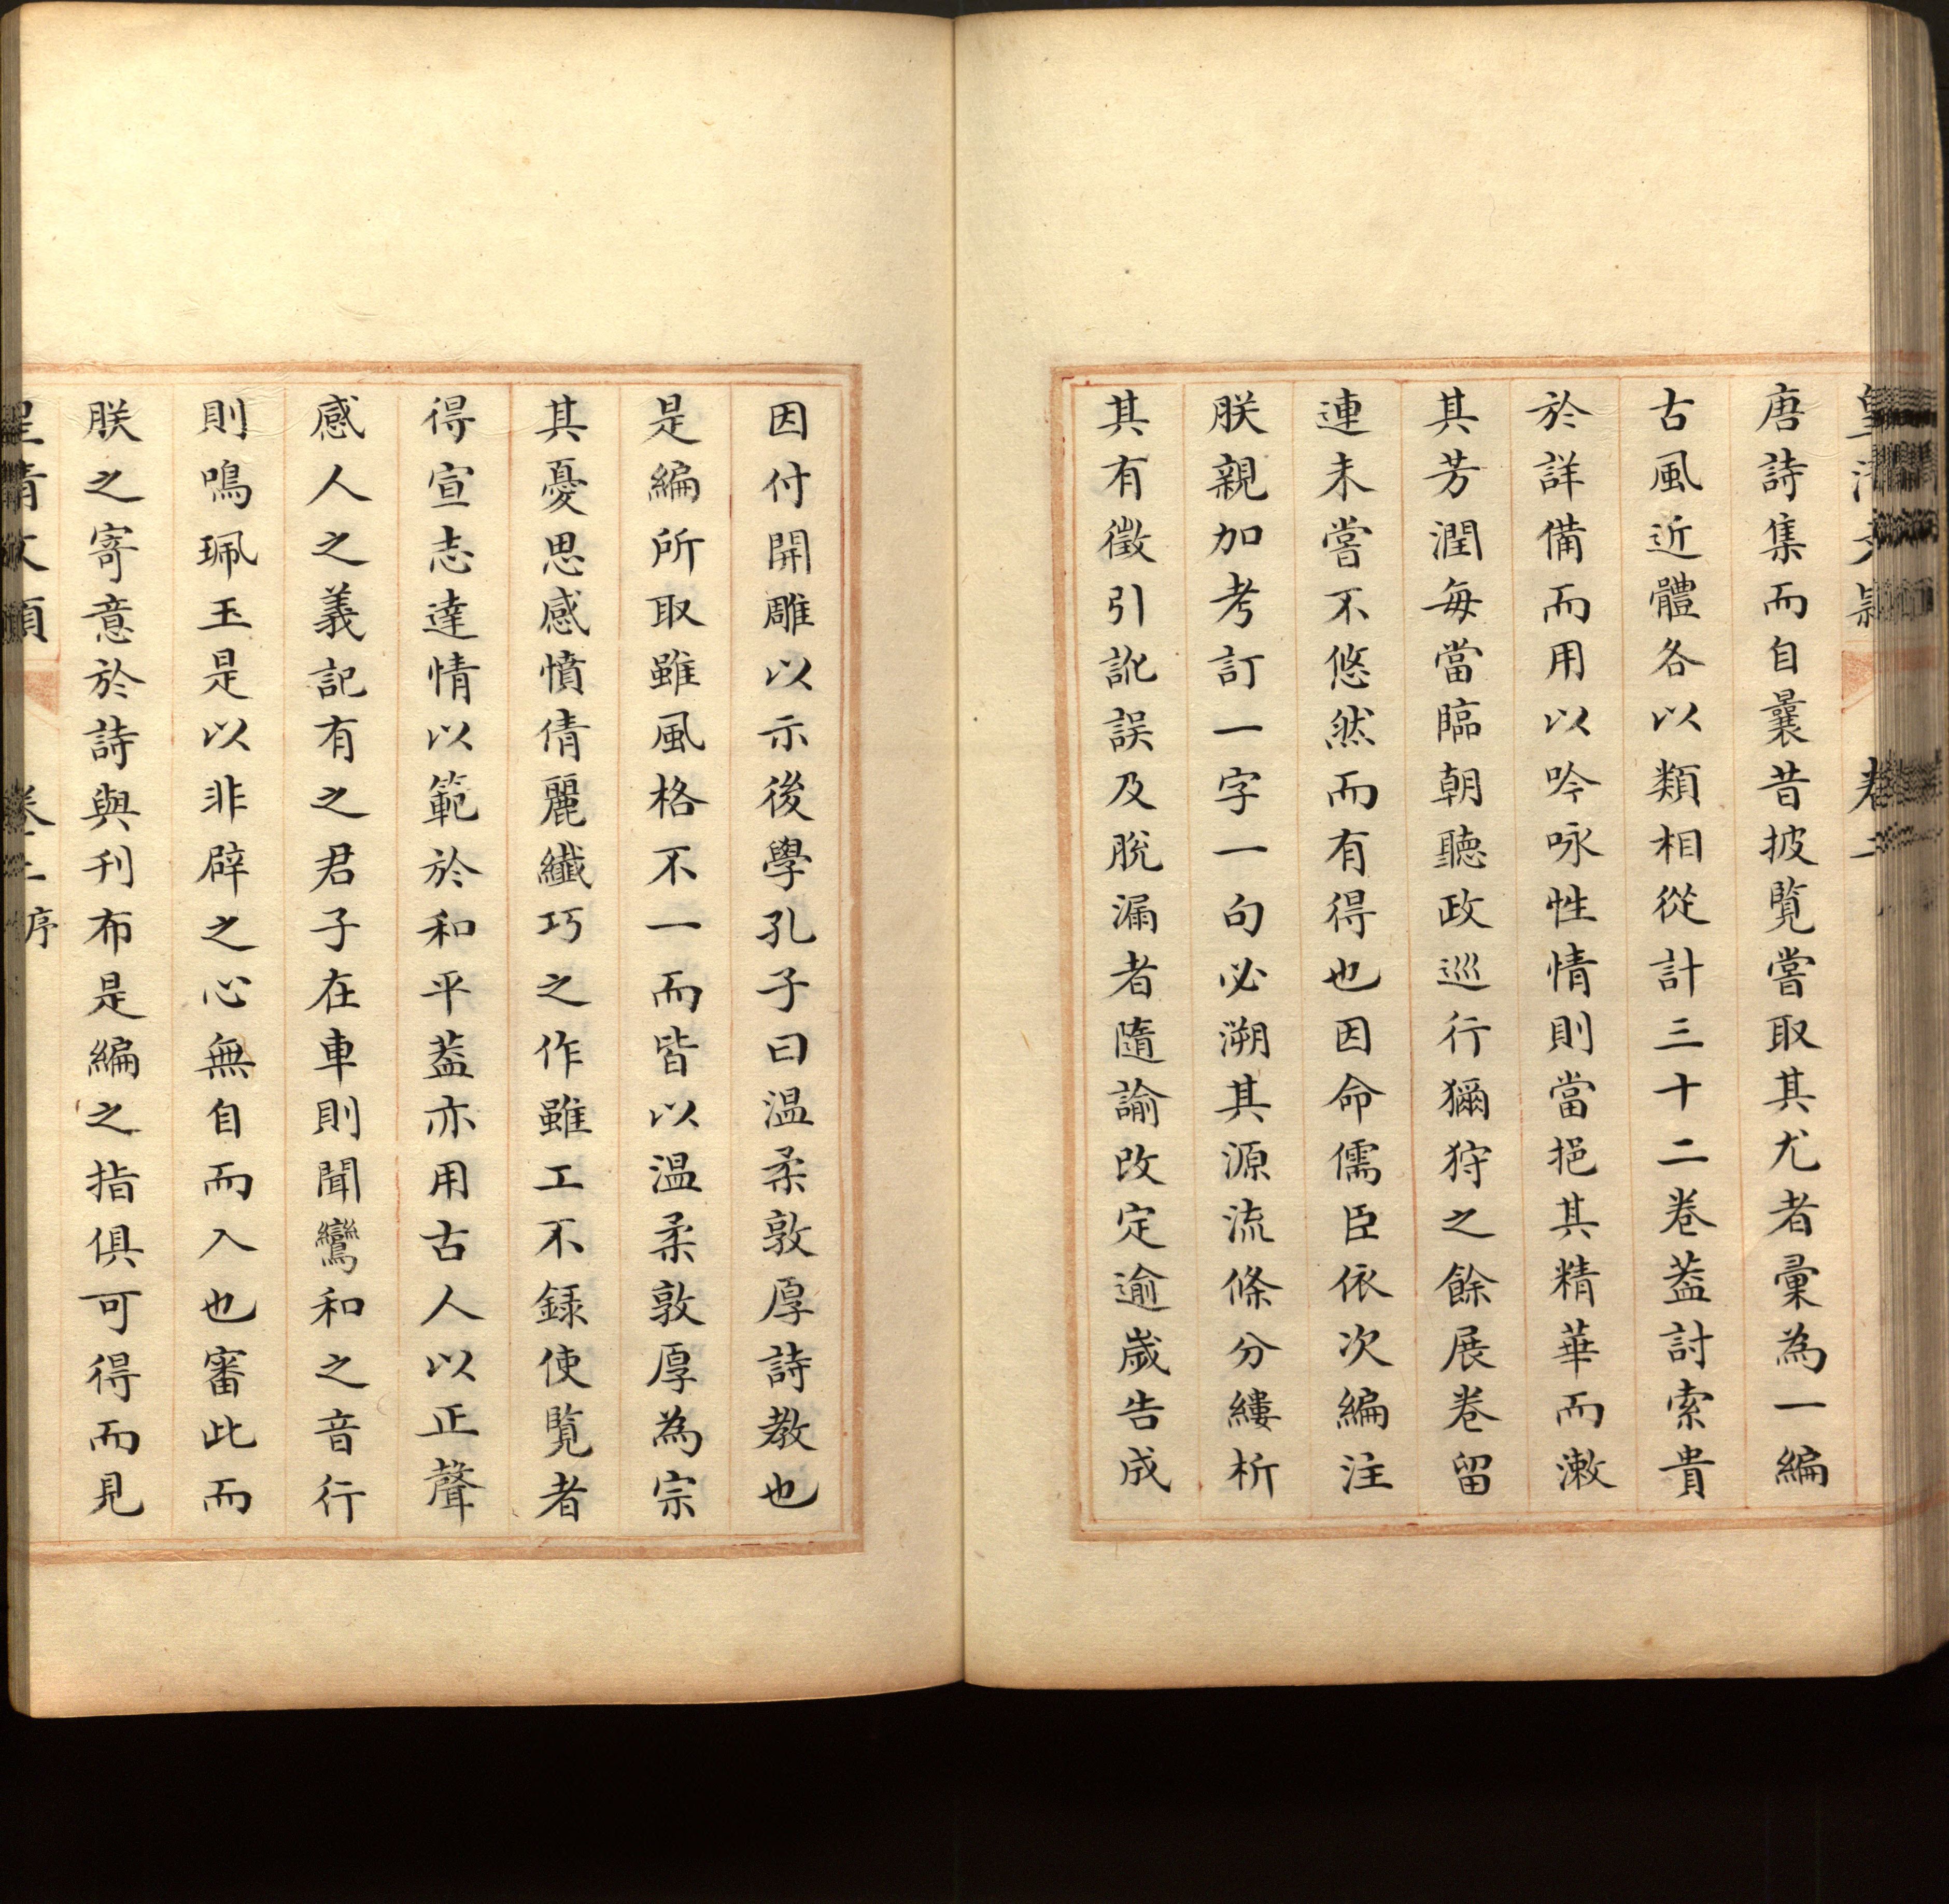 皇清文穎 卷二
唐詩集而自曩昔披覧嘗取其尤者彙為一編
古風近體各以類相從計三十二卷葢討索貴
於詳備而用以吟咏性情則當挹其精華而漱
其芳潤每當臨朝聽政巡行獮狩之餘展卷留
連未嘗不悠然而有得也因命儒臣依次編注
朕親加考訂一字一句必溯其源流條分縷析
其有徵引訛誤及脫漏者隨諭改定逾嵗告成
因付開雕以示後學孔子曰温柔敦厚詩教也
是編所取雖風格不一而皆以温柔敦厚為宗
其憂思感憤倩麗纖巧之作雖工不録使覧者
得宣志達情以範於和平葢亦用古人以正聲
感人之義記有之君子在車則聞鸞和之音行
則鳴珮玉是以非辟之心無自而入也審此而
朕之寄意於詩與刊布是編之指俱可得而見
皇清文穎 卷二 序